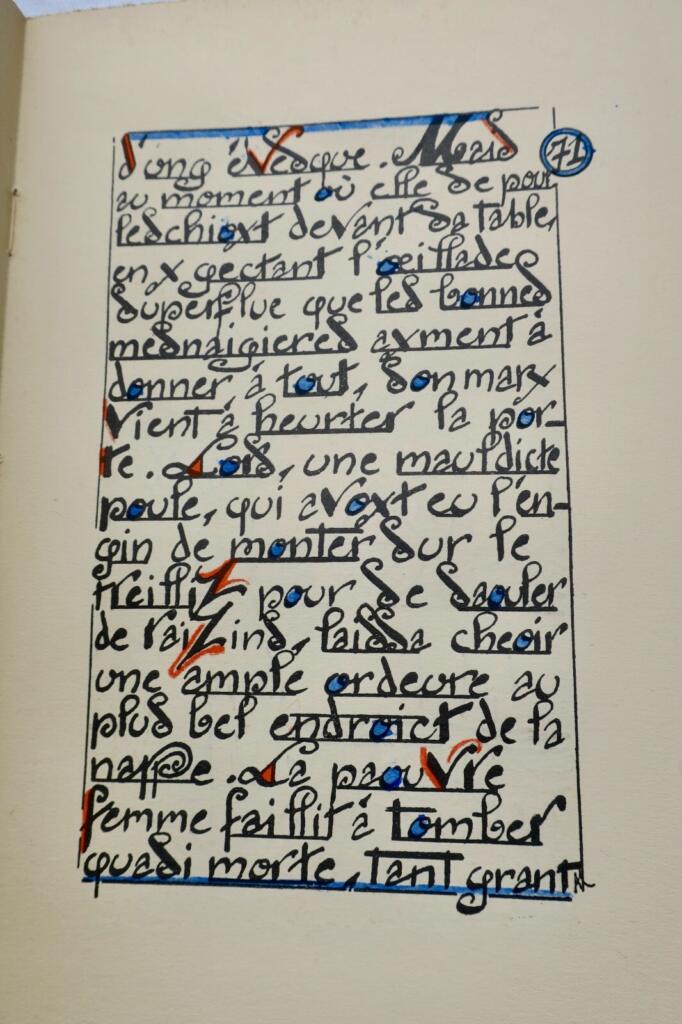 d'ung évesque. Mais
71
au moment où elle se pour
leschioxt devant sa table,
en x gectant l'œillade
superflue que les bonnes
mesnaigieres axment à
donner, à tout, son marx
vient à heurter la por-
te. Lors, une mauldicte
poule, qui avoxt eu l'en-
gin de monter sur le
treilliz pour se saouler
de raizins, laissa cheoir
une ample ordeure au
plus bel endroict de la
nappe. La paouvre
femme faillit à tomber
quasi morte, tant grant